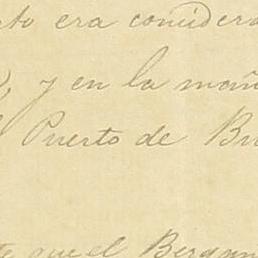 era considera
y en la mañ
Puerto de Bu
que el Bergan